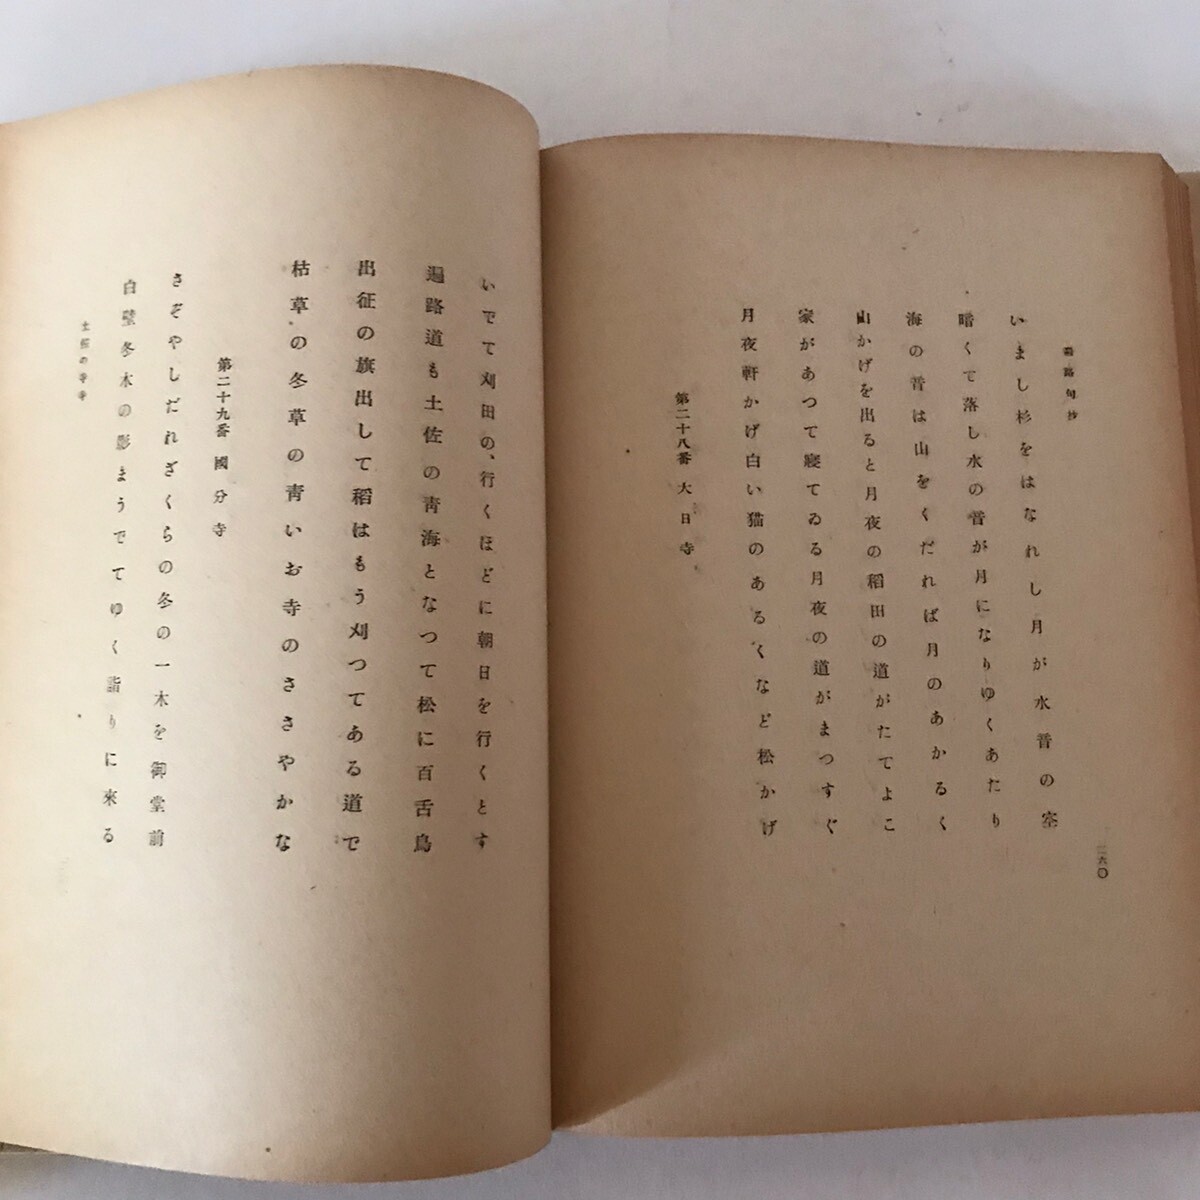 路句抄
一六〇
いまし杉をはなれし月が水音の空
暗くて落し水の音が月になりゆくあたり
海の音は山をくだれば月のあかるく
山かげを出ると月夜の稻田の道がたてよこ
家があつて寢てゐる月夜の道がまつすぐ
月夜軒かげ白い猫のあるくなど松かげ
第二十八番 大日寺
いでて刈田の、行くほどに朝日を行くとす
遍路道も土佐の靑海となつて松に百舌鳥
出征の旗出して稻はもう刈つてある道で
枯草の冬草の靑いお寺のささやかな
第二十九番 國分寺
さぞやしだれざくらの冬の一木を御堂前
白壁冬木の影まうでてゆく詣りに來る
土佐の寺寺